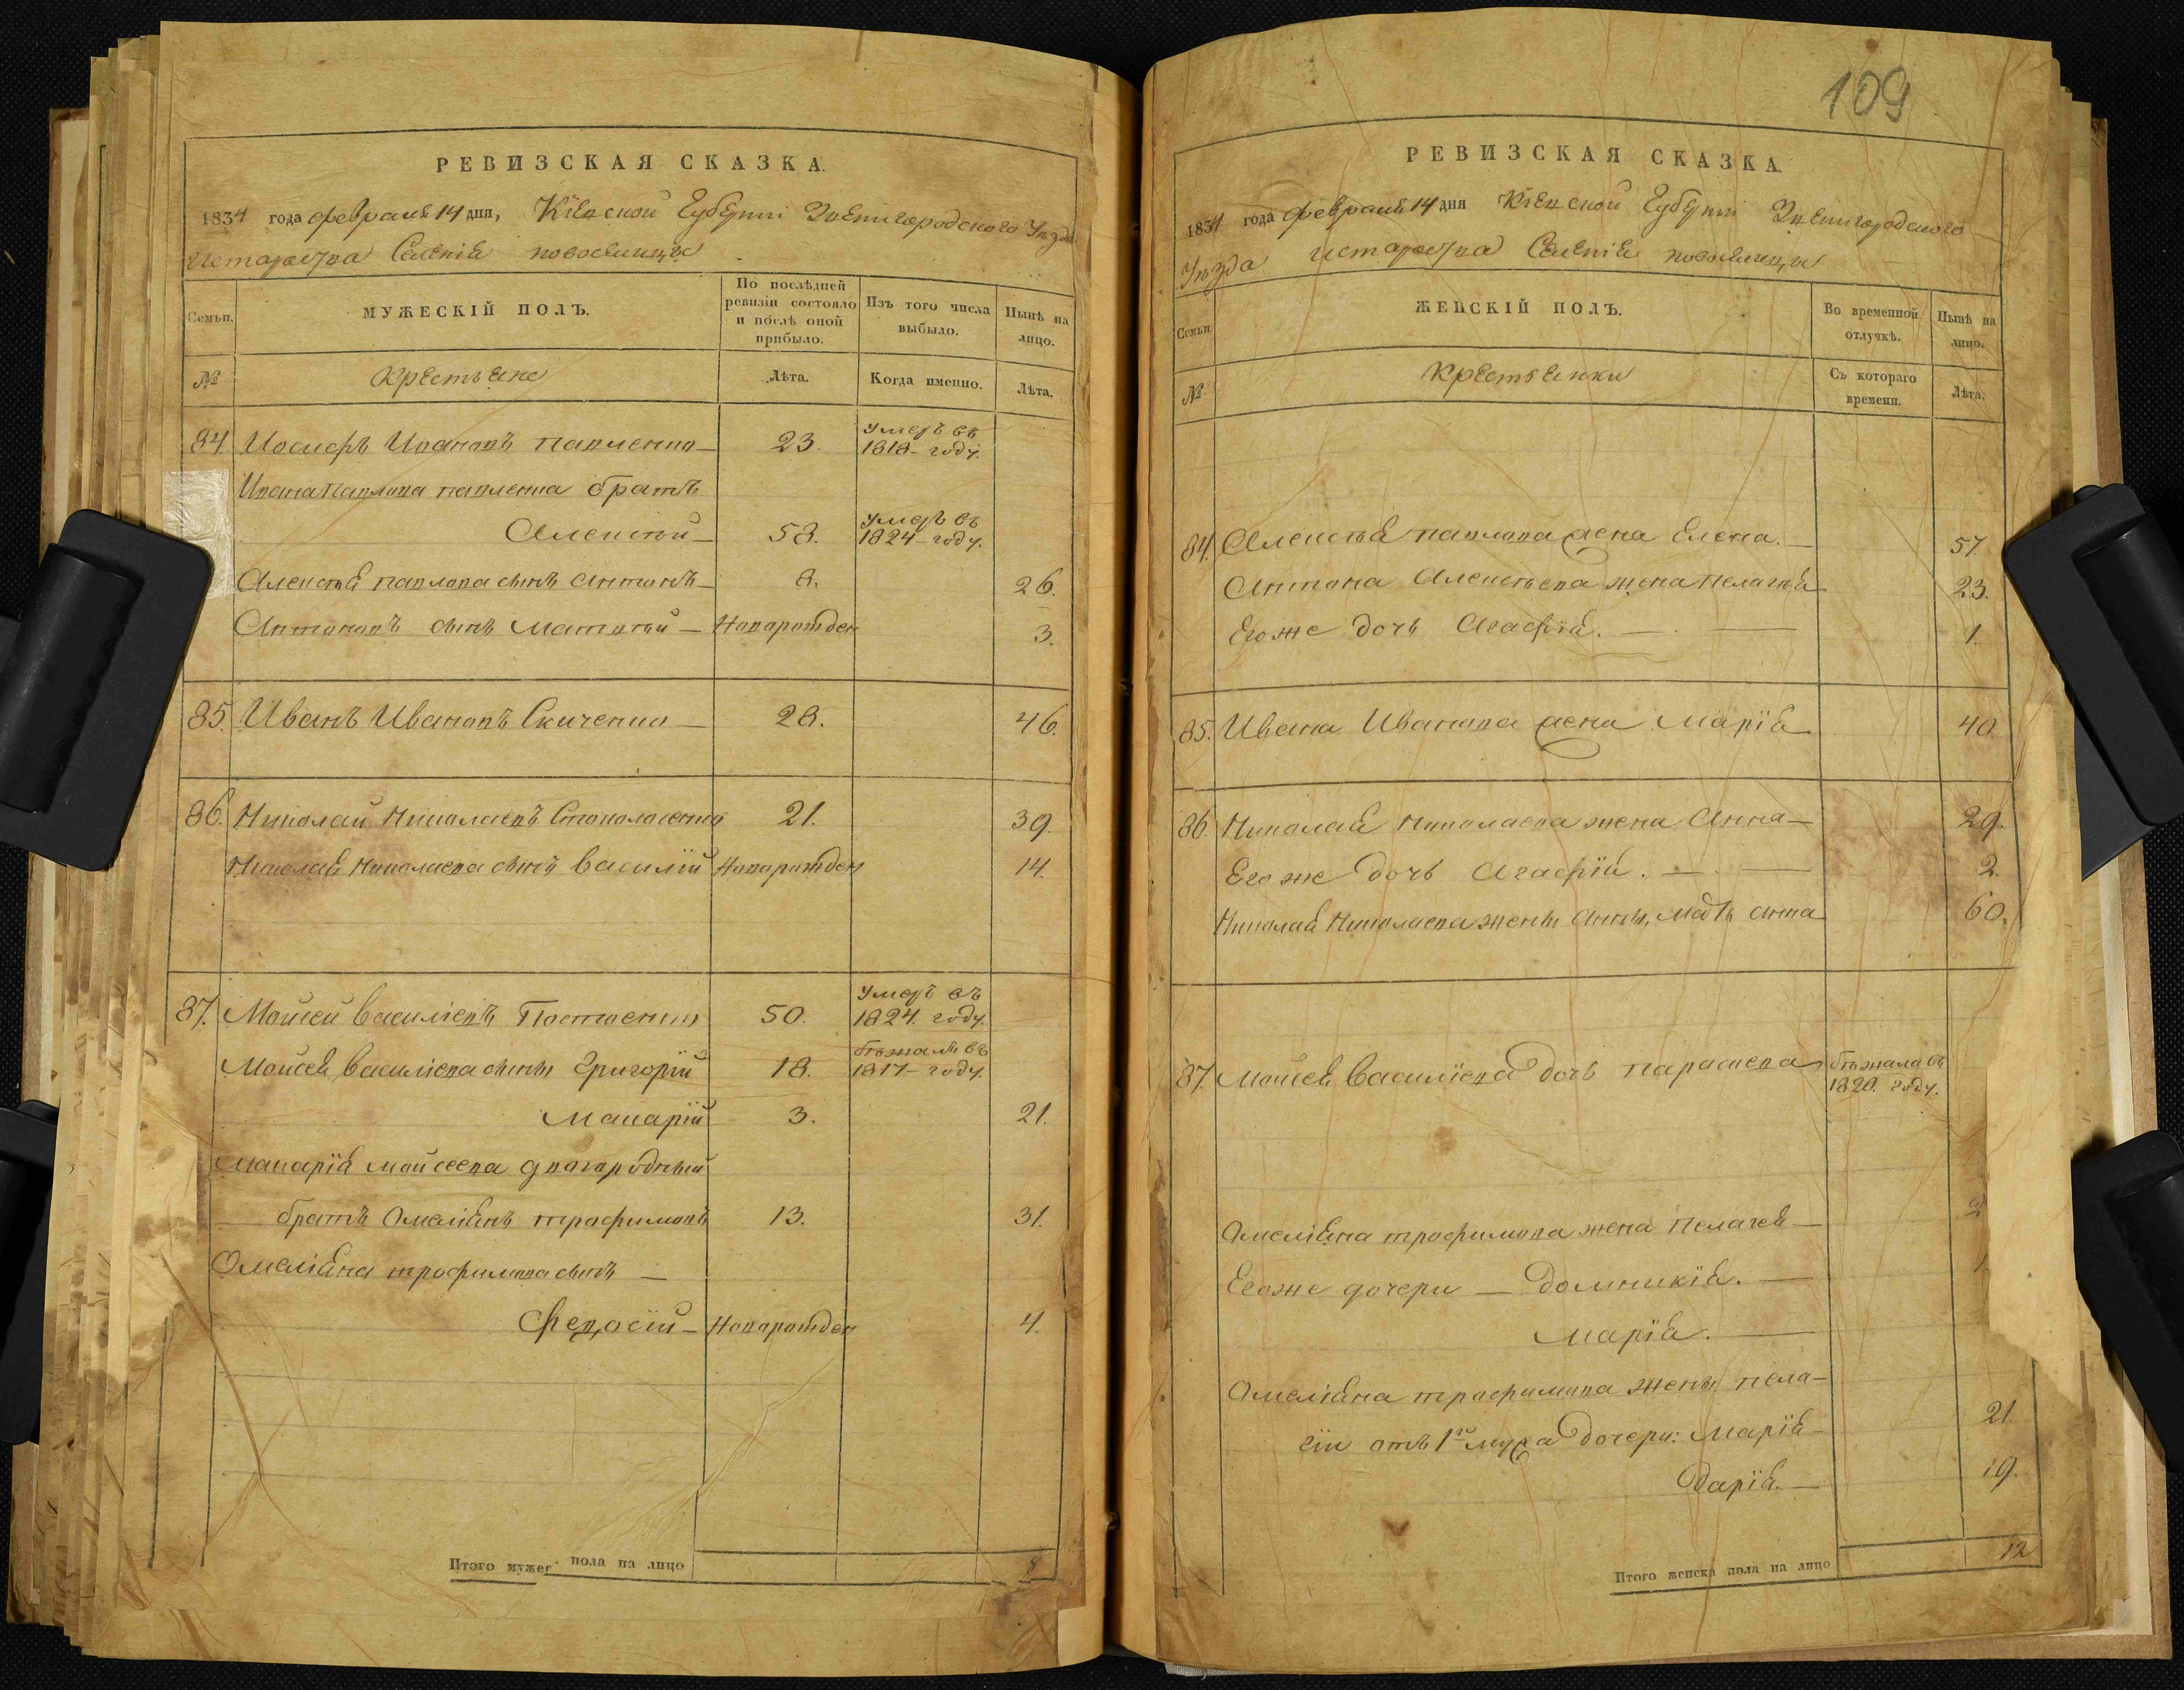 РЕВИЗСКАЯ СКАЗКА.
1834 года февраля 14 дня, Кіевской Губерніи Звенигородского Уезда
Староства Селенія новоселицы
Семьи.
МУЖЕСКІЙ ПОЛЪ.
По послѣдней ревизіи состояло и послѣ оной прибыло.
Изъ того числа выбыло.
Нынѣ на лицо.
№
Крестьяне
Лѣта.
Когда именно.
Лѣта.
84 Иосифъ Ивановъ павленко — 23. умеръ въ 1818 году.
Ивана Павлова павленка братъ
Алексей — 58. умеръ въ 1824 году.
Алексея павлова сынъ антонъ — 8. 26.
Антоновъ сынъ Матвей — Новорожден 3.
85. Иванъ Ивановъ — 28. 46.
86. Николай Николаевъ 21. 39.
Николая Николаева сынъ василій Новорожден 14.
87. Мойсей василіевъ 50. умеръ въ 1824. году.
Мойсея василіева сыны Григорій 18. бежалъ въ 1817 году.
Макарій 3. 21.
макарія мойсеева двоюродный
братъ Омеліянъ трофимовъ 13. 31.
Омеліяна трофимова сынъ —
Федосій — Новорожден 4.
Итого мужес пола на лицо 8
109
РЕВИЗСКАЯ СКАЗКА.
1834 года февраля 14 дня Кіевской Губерніи Звенигородского
Уезда Староства Селенія новоселицы
Семьи.
ЖЕНСКІЙ ПОЛЪ.
Во временной отлучкѣ.
Нынѣ на лицо.
№
Крестьянки
Съ котораго времени.
Лѣта.
84. Алексея павлова жена Елена. — 57.
Антона Алексеева жена пелагея 23.
Егоже дочь Агафія. — 1.
85. Ивана Иванова жена Марія 40.
86. Николая николаева жена Анна — 29.
Егоже дочь Агафія. — 2.
Николая Николаева жены анны, мать анна 60.
87. Мойсея василіева дочь параскева бежала въ 1820. году.
Омеліяна трофимова жена пелагея —
Егоже дочери — Домникія. —
Марія. —
Омеліяна трофимова жены пела-
гіи отъ 1го мужа дочери: Марія — 21
Дарія. — 19.
Итого женска пола на лицо 12